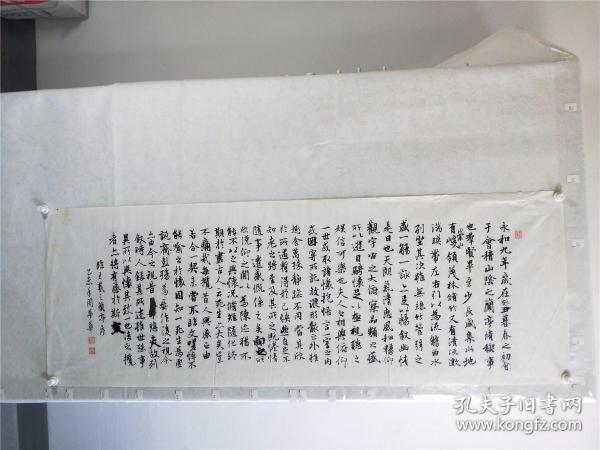 永和九年歲在癸丑暮春之初會
于會稽山陰之蘭亭脩稧事
也群賢畢至少長咸集此地
有崇山峻領茂林脩竹又有清流激
湍暎帶左右引以為流觴曲水
列坐其次雖無絲竹管弦之
盛一觴一詠亦足以暢敘幽情
是日也天朗氣清惠風和暢仰
觀宇宙之大俯察品類之盛
所以遊目騁懷足以極視聽之
娛信可樂也夫人之相與俯仰
一世或取諸懷抱悟言一室之內
或因寄所託放浪形骸之外雖
趣舍萬殊靜躁不同當其欣
於所遇暫得於己快然自足不
知老之將至及其所之既惓情
隨事遷感慨係之矣向之所
欣俛仰之閒以為陳迹猶不
能不以之興懷況脩短隨化終
期於盡古人云死生亦大矣豈
不痛哉每攬昔人興感之由
若合一契未嘗不臨文嗟悼不
能喻之於懷固知一死生為虛
誕齊彭殤為妄作後之視今
亦由今之視昔悲夫故列
敘時人錄其所述雖世殊事
異所以興懷其致一也後之攬
者亦將有感於斯文
臨王羲之蘭亭序
孔夫子旧书网
BOOK.KONGFZ.COM